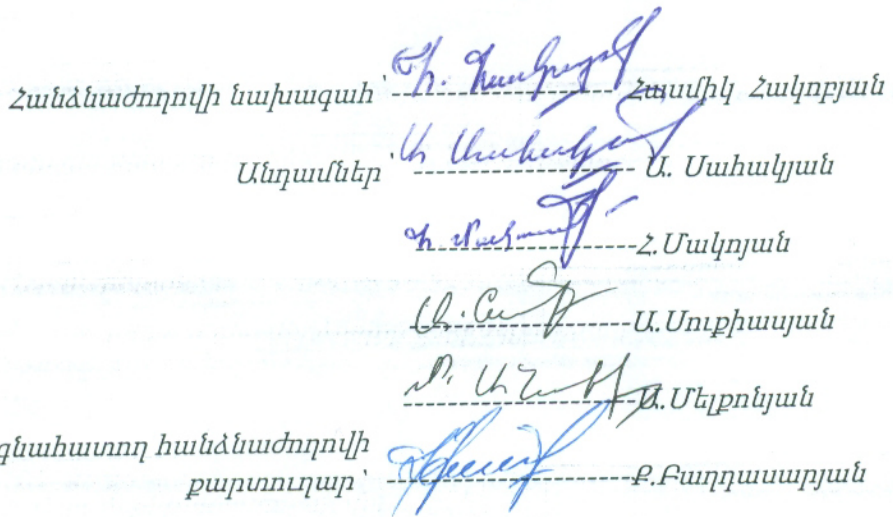 Հանձնաժողովի նախագահ՝ ---------------------- Հասմիկ Հակոբյան
Անդամներ՝ ---------------------- Ա. Սահակյան
----------------------Հ.Մակոյան
----------------------Ա.Սուքիասյան
----------------------Ա.Մելքոնյան
գնահատող հանձնաժողովի
քարտուղար՝ ----------------------Ք.Բաղդասարյան